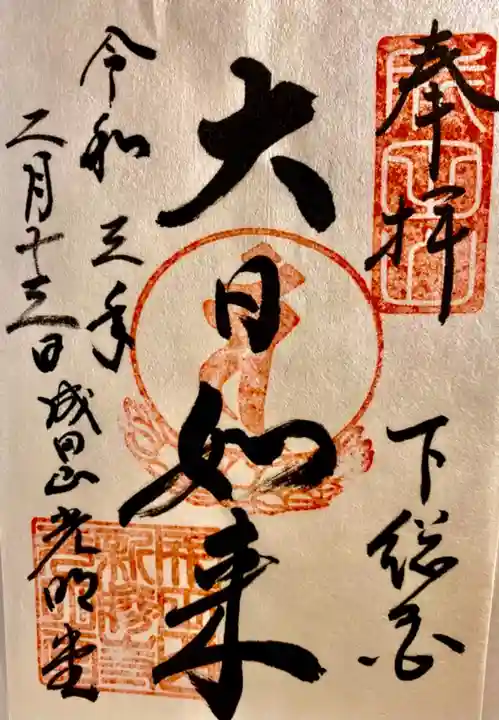 奉拝
下総国
大日如来
令和三年
二月十三日 成田山光明堂